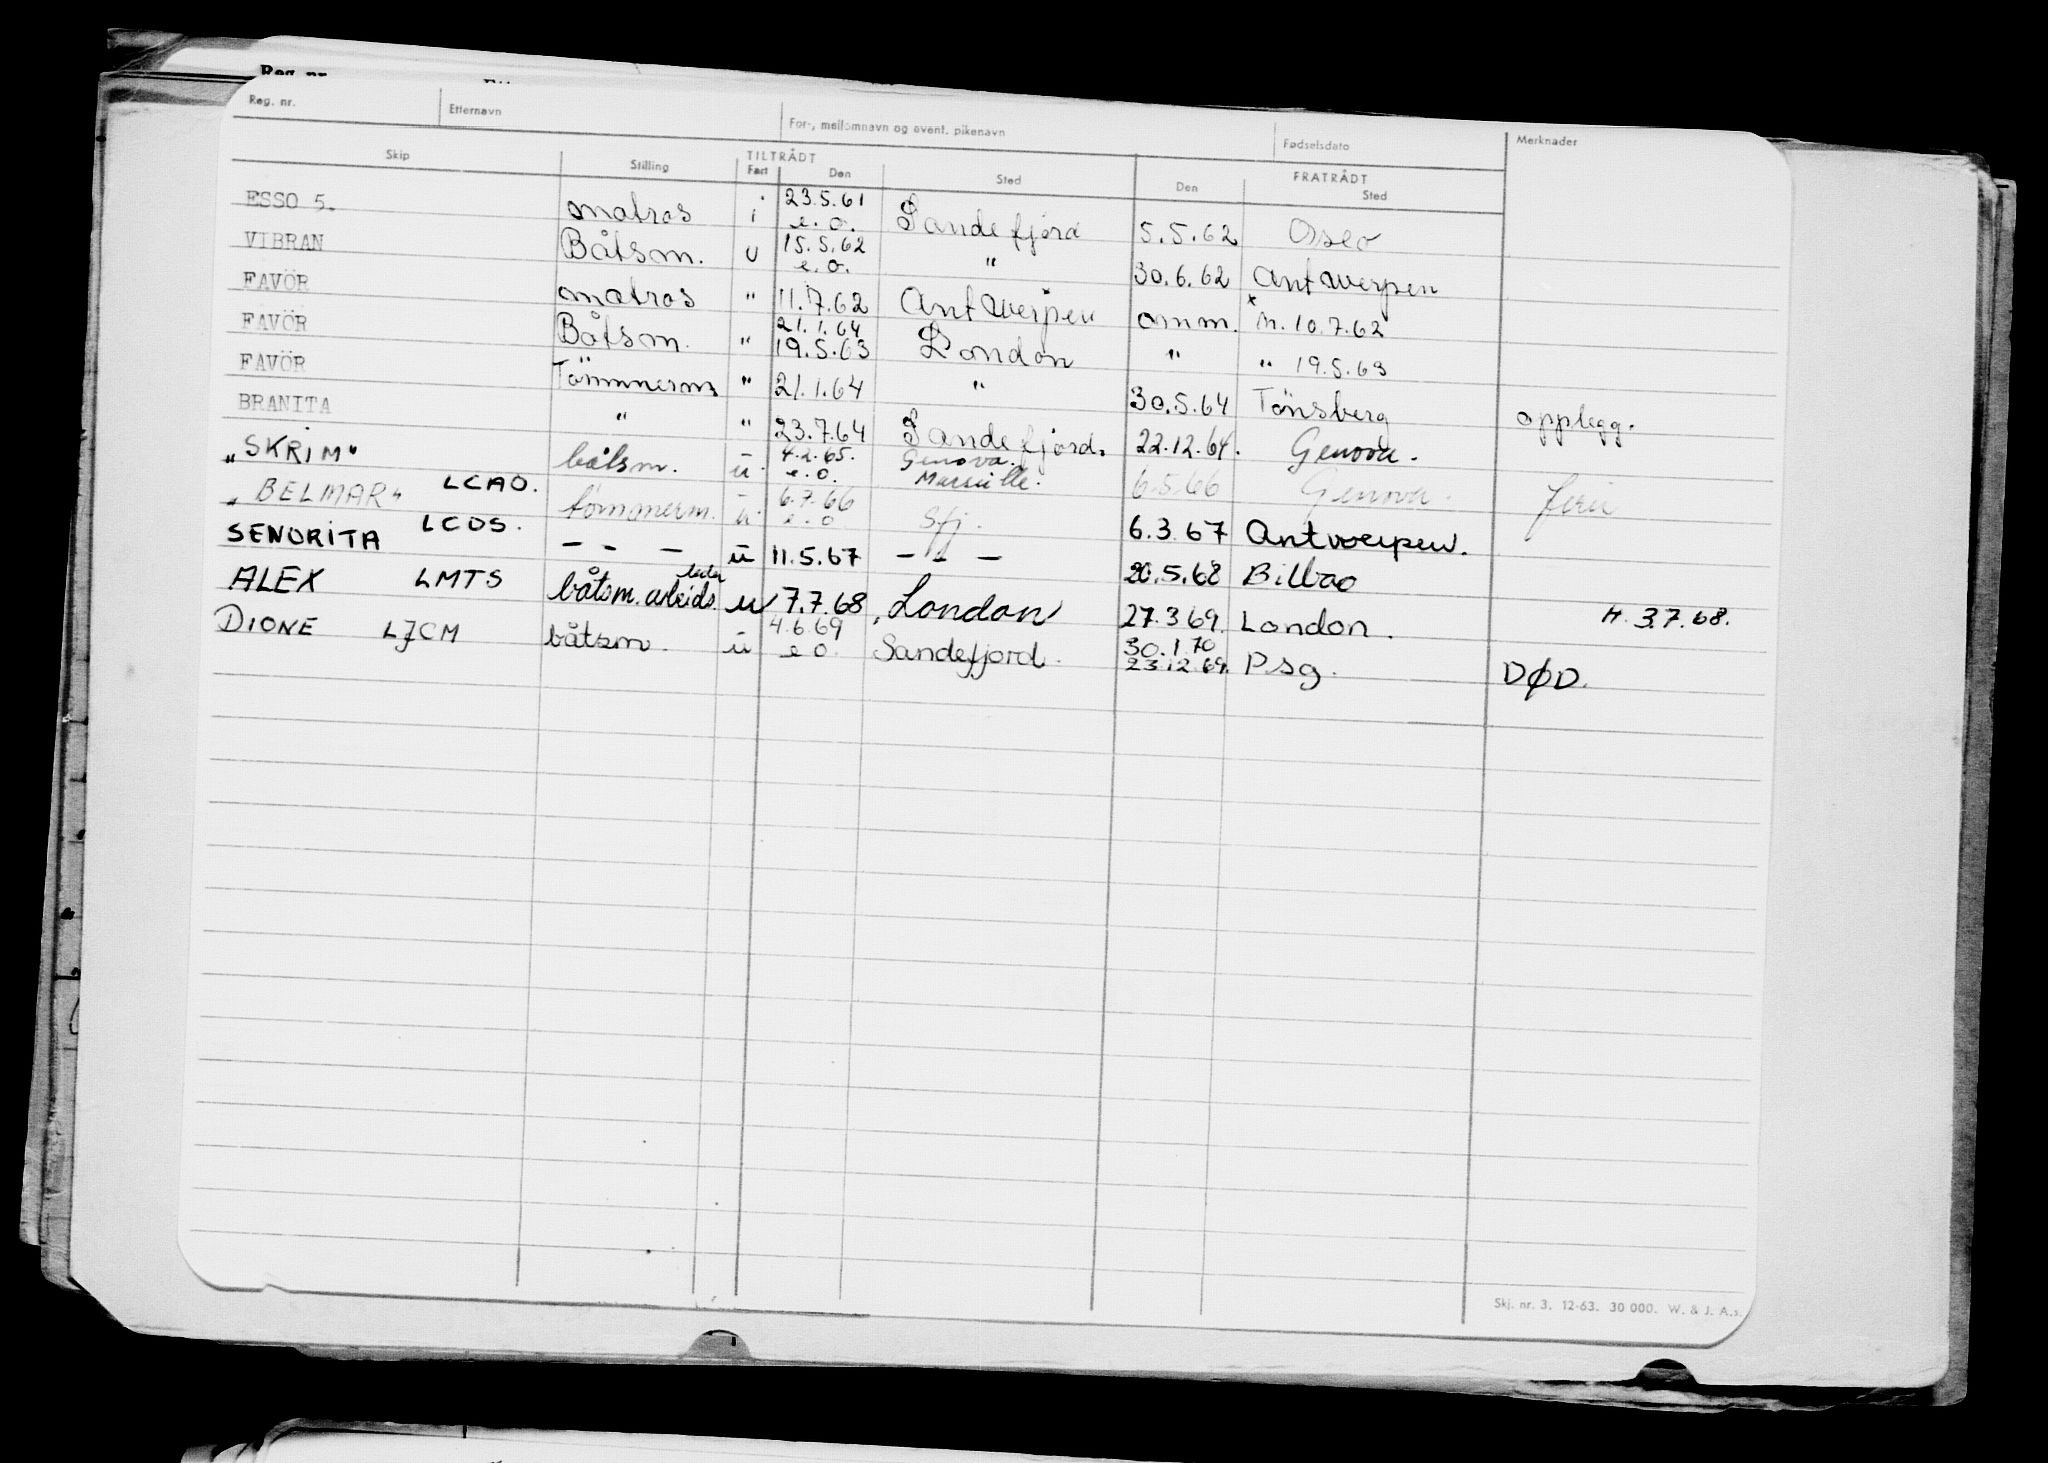 Reg. nr. Etternavn For-, mellomnavn og event. pikenavn Fødselsdato Merknader
Skip Stilling TILTRÅDT Fart Den Sted FRATRÅDT Den Sted
ESSO 5. matros i 23.5.61 e.o. Sandefjord 5.5.62 Oslo
VIBRAN Båtsm. u 15.5.62 e.o. " 30.6.62 Antwerpen
FAVÖR matros " 11.7.62 Antwerpen omm. m. 10.7.62
FAVÖR Båtsm. " 21.1.64 19.5.63 London " " 19.5.63
FAVÖR Tömmerm " 21.1.64 " 30.5.64 Tönsberg opplegg.
BRANITA " " 23.7.64 Sandefjord. 22.12.64. Genova.
"SKRIM" LCAO. båtsm. u 4.2.65. e.o. Genova. Marseille. 6.5.66 Genova. ferie
"BELMAR" LCOS. tømmerm. u 6.7.66 e.o. Sfj. 6.3.67 Antwerpen.
SENORITA - - - u 11.5.67 - - - 20.5.68 Bilbao
ALEX LMTS båtsm. arbeids. leder u 7.7.68 London 27.3.69. London. H. 3.7.68.
DIONE LJCM båtsm. u 4.6.69 e.o. Sandefjord. 30.1.70 23.12.69. Psg. DØD.
Skj. nr. 3. 12-63. 30 000. W. & J. A.s.